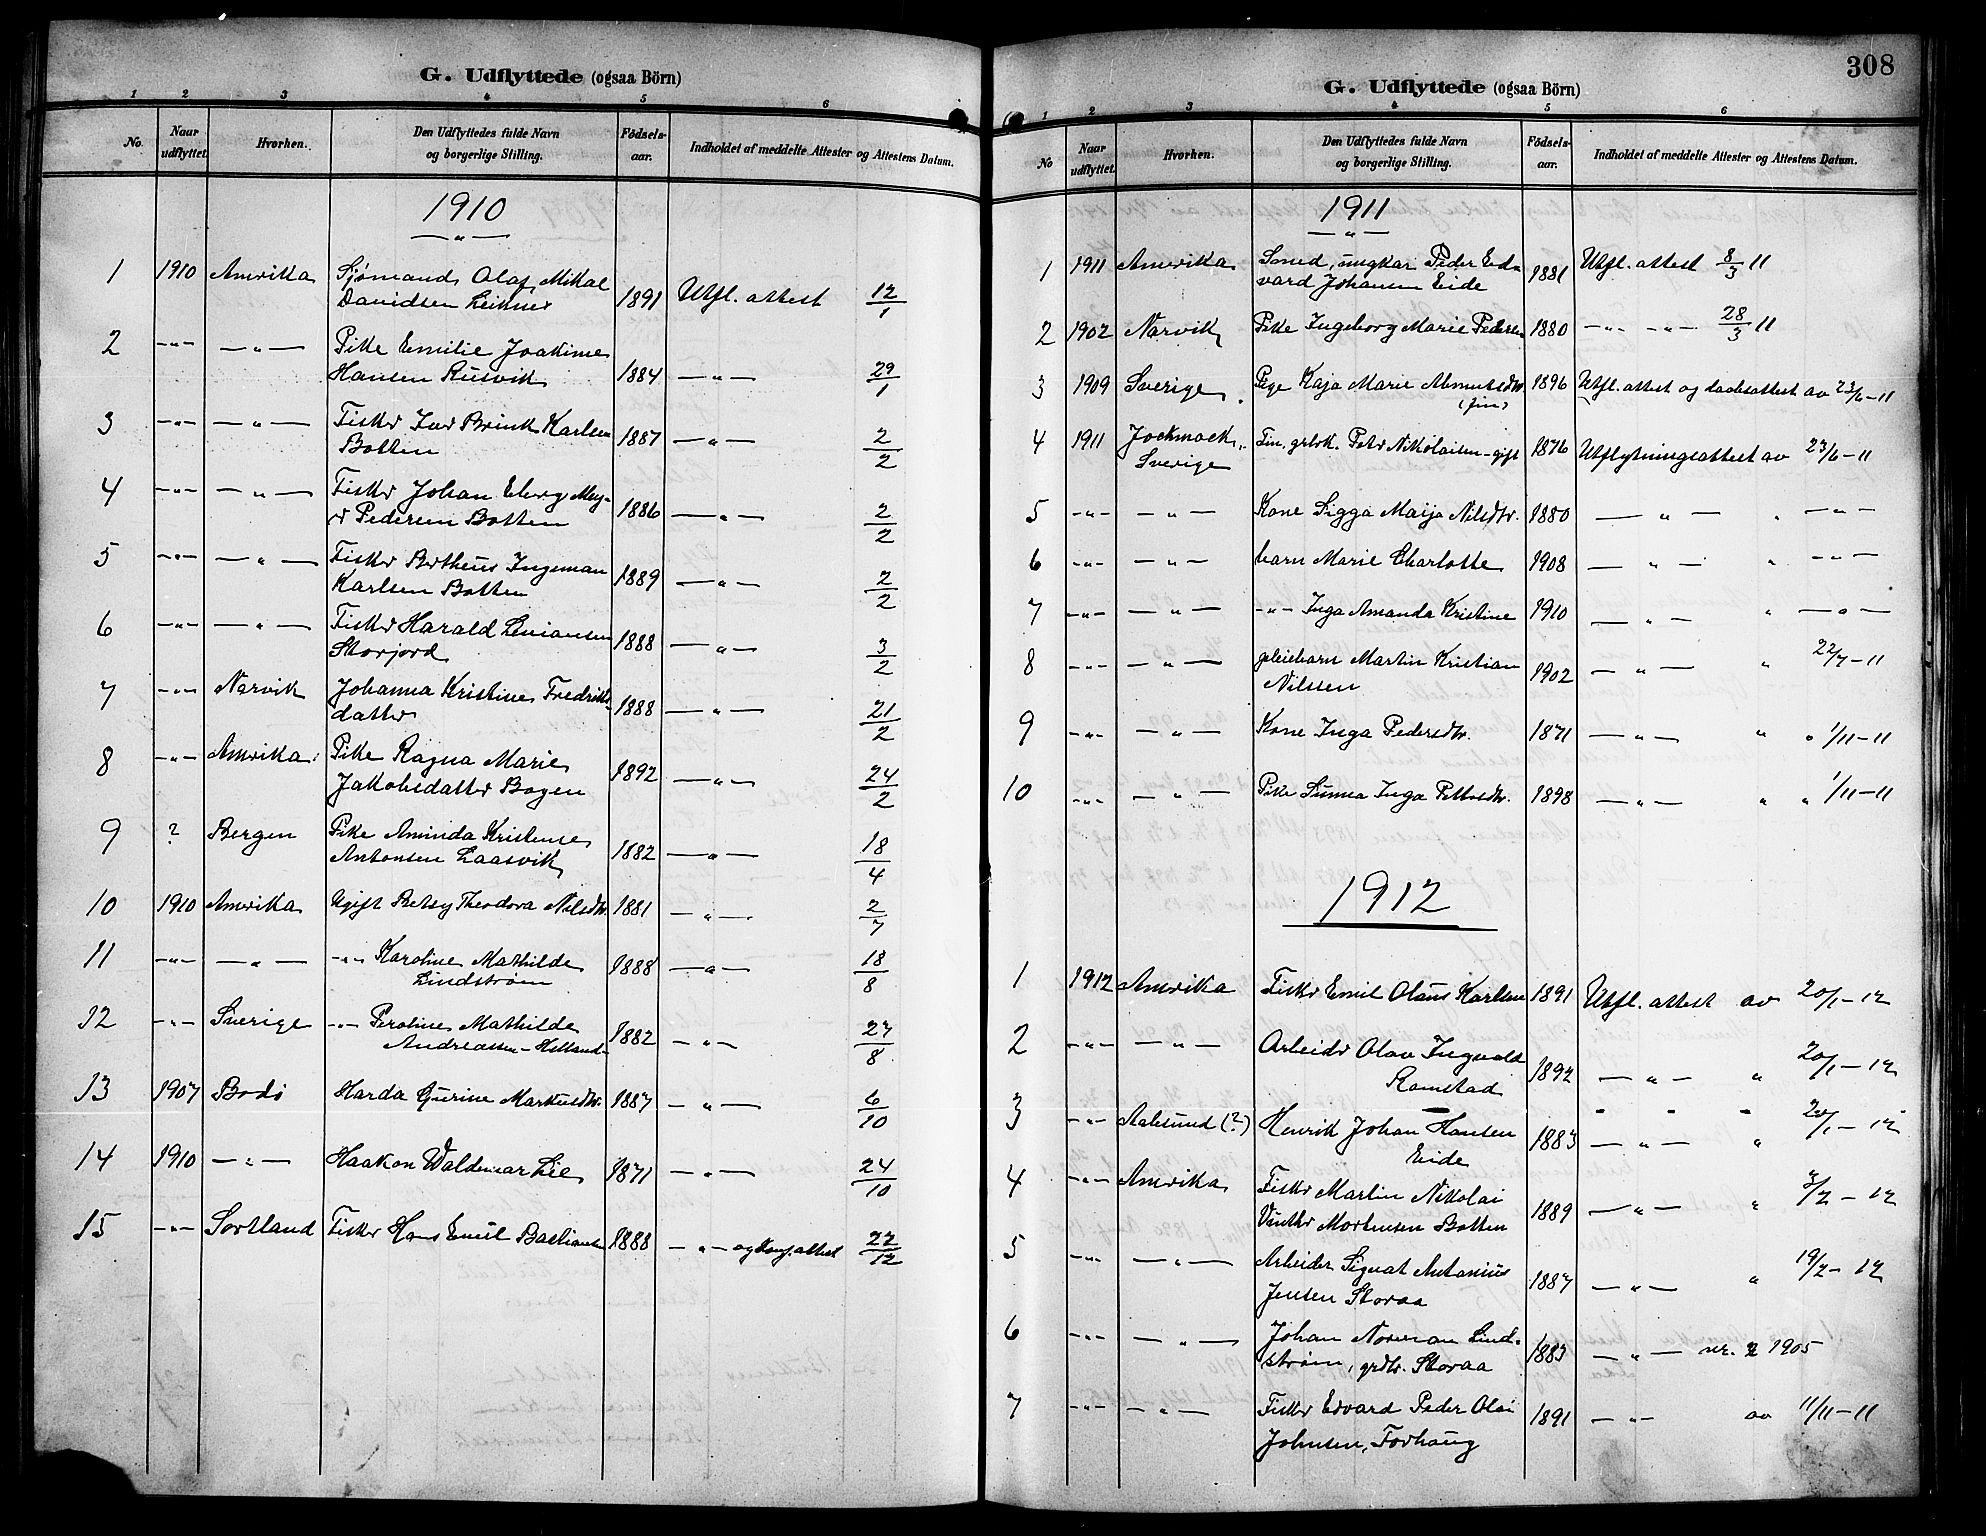 G. Udflyttede (ogsaa Börn)
1 2 3 4 5 6
No. Naar udflyttet. Hvorhen. Den Udflyttedes fulde Navn og borgerlige Stilling. Födsels-aar. Indholdet af meddelte Attester og Attestens Datum.
1910
—"—
1 1910 Amerika Sjømand Olaf Mikal
Davidsen Leiknes 1891 Utfl. attest 12/1
2 -"- —"— Pike Emilie Joakime
Hansen Rusvik 1884 —"— 29/1
3 -"- —"— Fisker Ivar Brink Karlsen
Botten 1887 —"— 2/2
4 -"- —"— Fisker Johan Eberg Mey-
er Pedersen Botten 1886 —"— 2/2
5 -"- —"— Fisker Bertheus Ingeman
Karlsen Botten 1889 —"— 2/2
6 -"- —"— Fisker Harald
Storjord 1888 —"— 3/2
7 -"- Narvik Johanna Kristine Fredriks-
datter 1888 —"— 21/2
8 -"- Amerika Pike Ragna Marie
Jakobsdatter Bogen 1892 —"— 24/2
9 ? Bergen Pike Aminda Kristense
Antonsen Laasvik 1882 —"— 18/4
10 1910 Amerika Ugift Betsy Theodora Nilsdtr. 1881 —"— 2/7
11 -"- —"— -"- Karoline Mathilde
Lindstrøm 1888 —"— 18/8
12 -"- Sverige -"- Peroline Mathilde
Andreassen - Helland- 1882 —"— 27/8
13 1907 Bodö Harda Gurine Markusdtr. 1887 —"— 6/10
14 1910 —"— Haakon Waldemar Lie 1871 —"— 24/10
15 -"- Sortland Fisker Hans Emil Bastiansen 1888 —"— og konf. attest 22/12
308
G. Udflyttede (ogsaa Börn)
1 2 3 4 5 6
No Naar udflyttet. Hvorhen. Den Udflyttedes fulde Navn og borgerlige Stilling. Födsels-aar. Indholdet af meddelte Attester og Attestens Datum.
1911
—"—
1 1911 Amerika Smed, ungkar Peder Ed-
vard Johansen Eide 1881 Utfl. attest 8/3 11
2 1902 Narvik Pike Ingeborg Marie Pedersen 1880 -"- -"- 28/3 11
3 1909 Sverige Pige Kaja Marie
(fin) 1896 Utfl. attest og daabsattest av 23/6-11
4 1911 Jockmock,
Sverige Fin, grbrk. Peter Nikolaisen - gift 1876 Utflytningsattest av 23/6-11
5 -"- -"- Kone Sigga Maija Nilsdtr. 1880 —"— " -"-
6 -"- -"- barn Marie Charlotte 1908 —"— " -"-
7 -"- -"- -"- Inga Amanda Kristine 1910 —"— " -"-
8 -"- -"- pleiebarn Martin Kristian
Nilssen 1902 —"— " 22/7-11
9 -"- -"- Kone Inga Pedersdtr. 1871 —"— " " 1/11-11
10 -"- -"- Pike Inga 1898 —"— " " 1/11-11
1912
1 1912 Amerika Fisker Emil Olaus Karlsen 1891 Utfl. attest av 20/1-12
2 -"- -"- Arbeider Olav Ingvald
Ramstad 1892 —"— " 20/1-12
3 -"- Aalesund (?) Henrik Johan Hansen
Eide 1883 —"— " 20/1-12
4 -"- Amerika Fisker Martin Nikolai
Vinther Mortensen Botten 1889 —"— " /2-12
5 -"- -"- Arbeider Sigvat Antonius
Jensen Storaa 1887 —"— " 19/2-12
6 -"- —"— Johan Norman Lind-
strøm, grdbr. Storaa 1883 —"— nr. 2 1905
7 -"- —"— Fisker Edvard Peder Olai
Johnsen, Forhaug 1891 —"— av 11/11-11